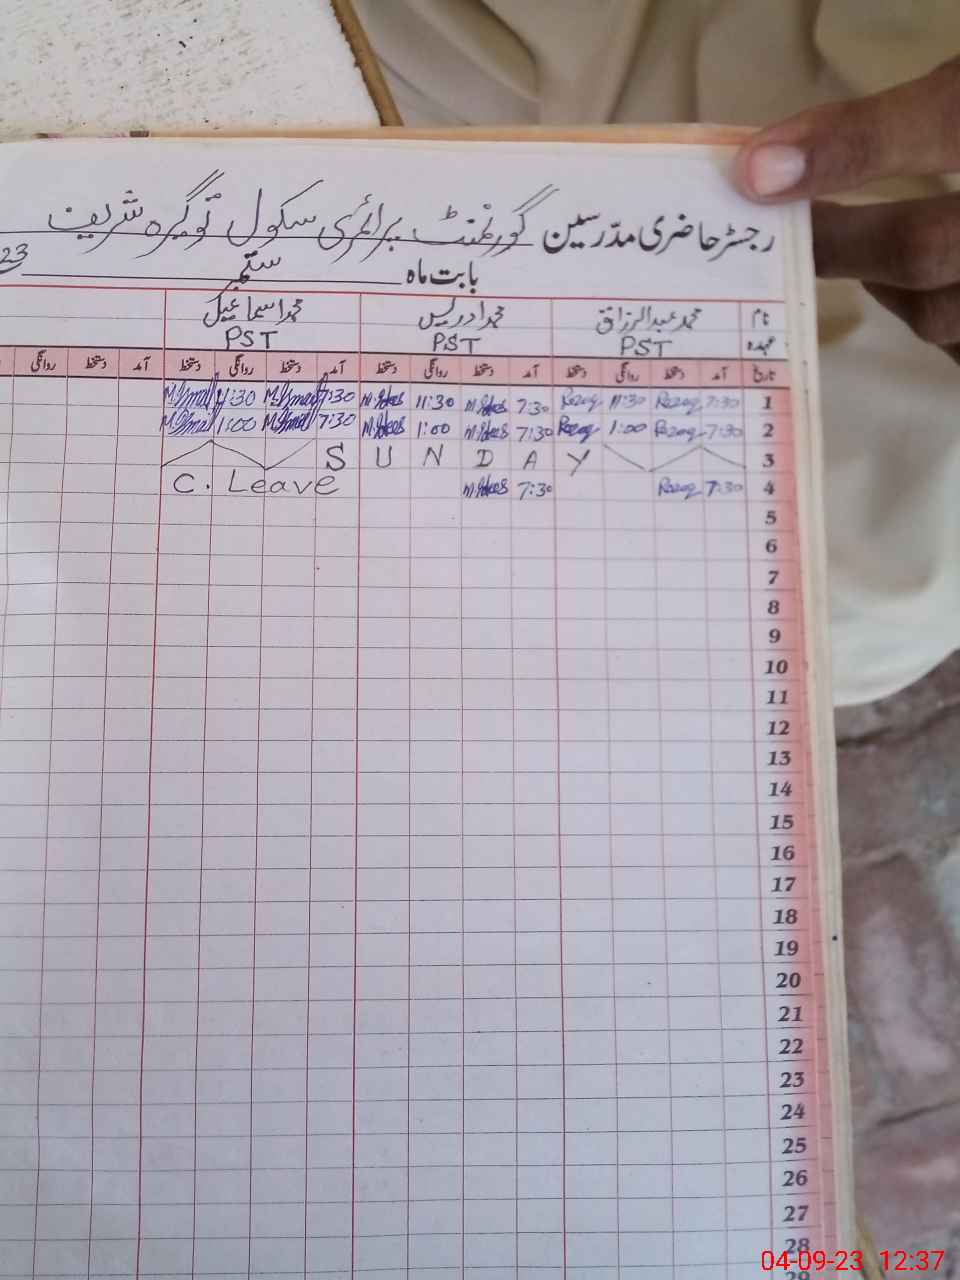 رجسٹر حاضری مدرسین گورنمنٹ پرائمری سکول توگیرہ شریف
بابت ماہ ستمبر 23
نام محمد عبدالرزاق محمد ادریس محمد اسماعیل
عہدہ PST PST PST
تاریخ آمد دستخط روانگی دستخط آمد دستخط روانگی دستخط آمد دستخط روانگی دستخط آمد دستخط روانگی
1 7:30 Razaq 11:30 Razaq 7:30 M.Idrees 11:30 M.Idrees 7:30 M.Ismail 11:30 M.Ismail
2 7:30 Razaq 1:00 Razaq 7:30 M.Idrees 1:00 M.Idrees 7:30 M.Ismail 1:00 M.Ismail
3 SUNDAY
4 7:30 Razaq 7:30 M.Idrees C. Leave
5
6
7
8
9
10
11
12
13
14
15
16
17
18
19
20
21
22
23
24
25
26
27
28
29
04-09-23 12:37